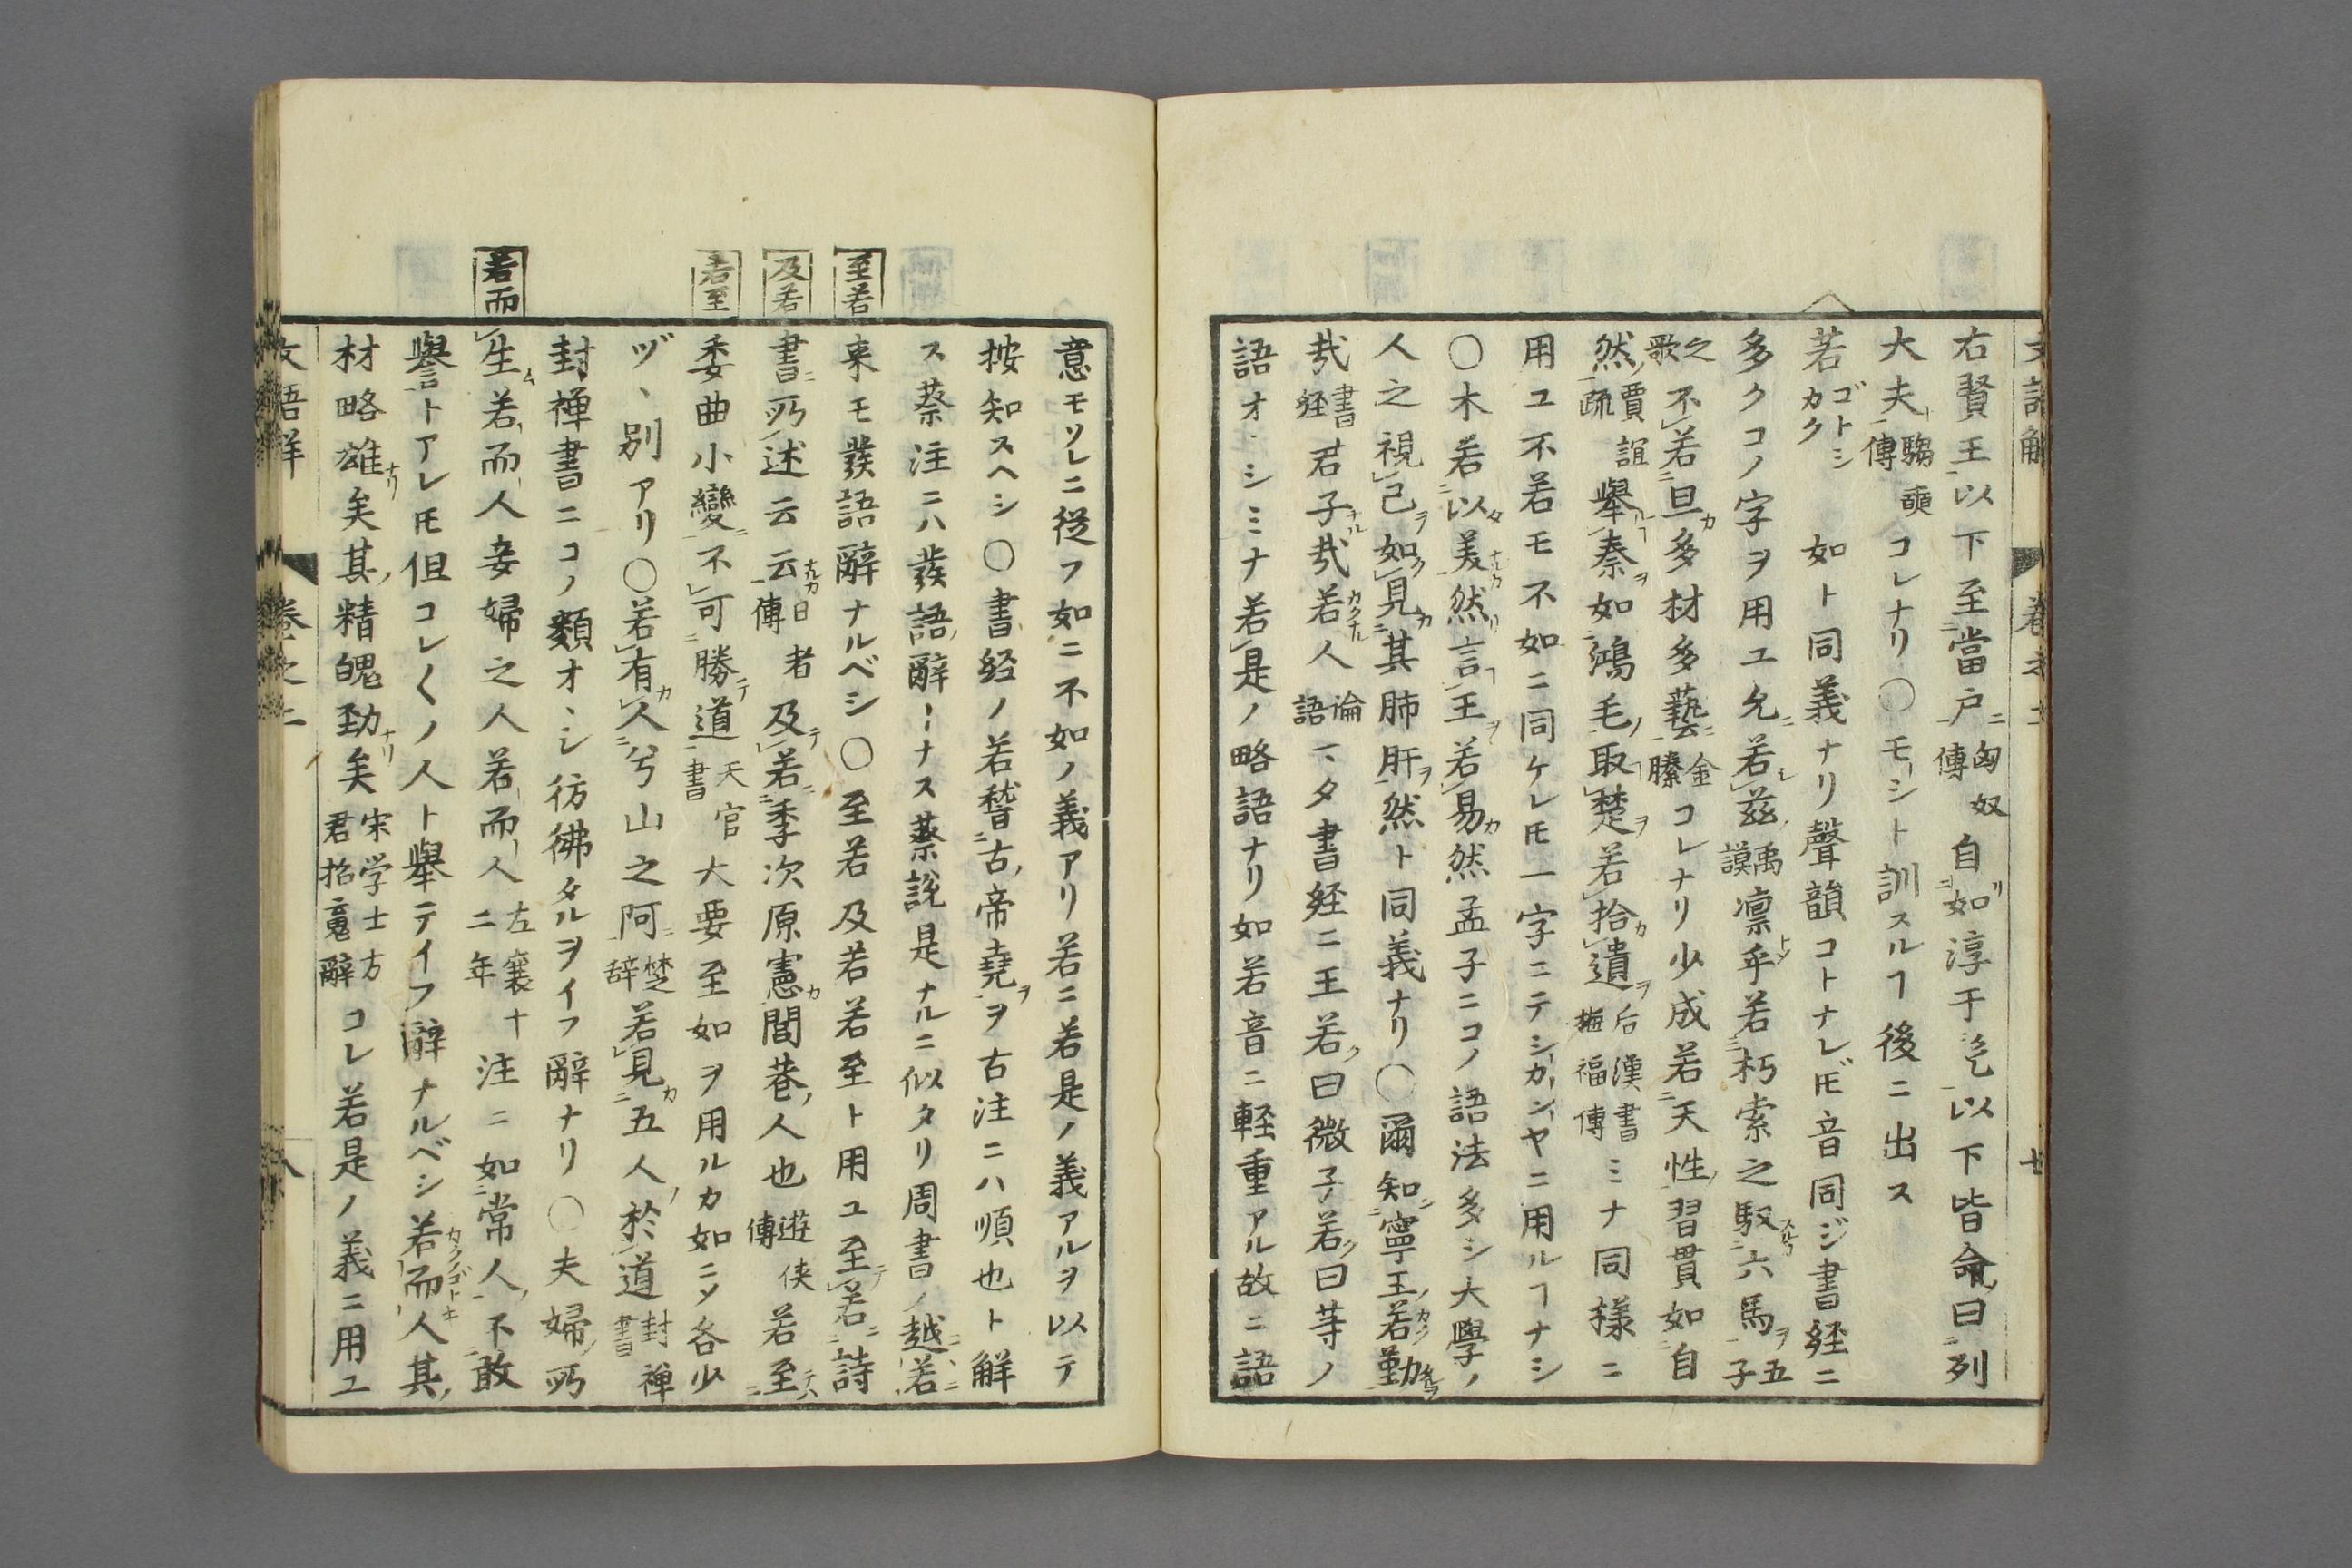 右賢王以下至當戸匈奴傳自如淳于髠以下皆命曰列
大夫騶奭傳コレナリ○モシト訓スルヿ後ニ出ス
若ゴトシカク 如ト同義ナリ聲韻コトナレドモ音同ジ書経ニ
多クコノ字ヲ用ユ允若茲禹謨凛乎若朽索之馭六馬五子
之歌不若旦多材多藝金縢コレナリ少成若天性習貫如自
然賈誼疏舉秦如鴻毛取楚若拾遺后漢書梅福傳ミナ同様ニ
用ユ不若モ不如ニ同ケレ𪜈一字ニテシカンヤニ用ルヿナシ
○木若以美然言王若易然孟子ニコノ語法多シ大學ノ
人之視己如見其肺肝然ト同義ナリ○爾知寧王若勤
哉書経君子哉若人論語一タ書経ニ王若曰微子若曰等ノ
語オヽシミナ若是ノ略語ナリ如若音ニ軽重アル故ニ語
意モソレニ從フ如ニ不如ノ義アリ若ニ若是ノ義アルヲ以テ
按知スヘシ○書経ノ若稽古帝堯ヲ古注ニハ順也ト解
ス蔡注ニハ發語辭トナス蔡説是ナルニ似タリ周書ノ越若
来モ發語辭ナルベシ○至若及若若至ト用ユ至若詩
書所述云云日者傳及若季次原憲閭巷人也遊侠傳若至
委曲小變不可勝道天官書大要至如ヲ用ルカ如ニメ各少
ヅヽ別アリ○若有人兮山之阿楚辞若見五人於道封禅書
封禅書ニコノ類オヽシ彷彿タルヲイフ辭ナリ○夫婦所
生若而人妾婦之人若而人左襄十二年注ニ如常人不敢
譽トアレ𪜈但コレ〱ノ人ト舉テイフ辭ナルベシ若而人其
材略雄矣其精魄勁矣宋学士方君招䰟辭コレ若是ノ義ニ用ユ
至若
及若
若至
若而